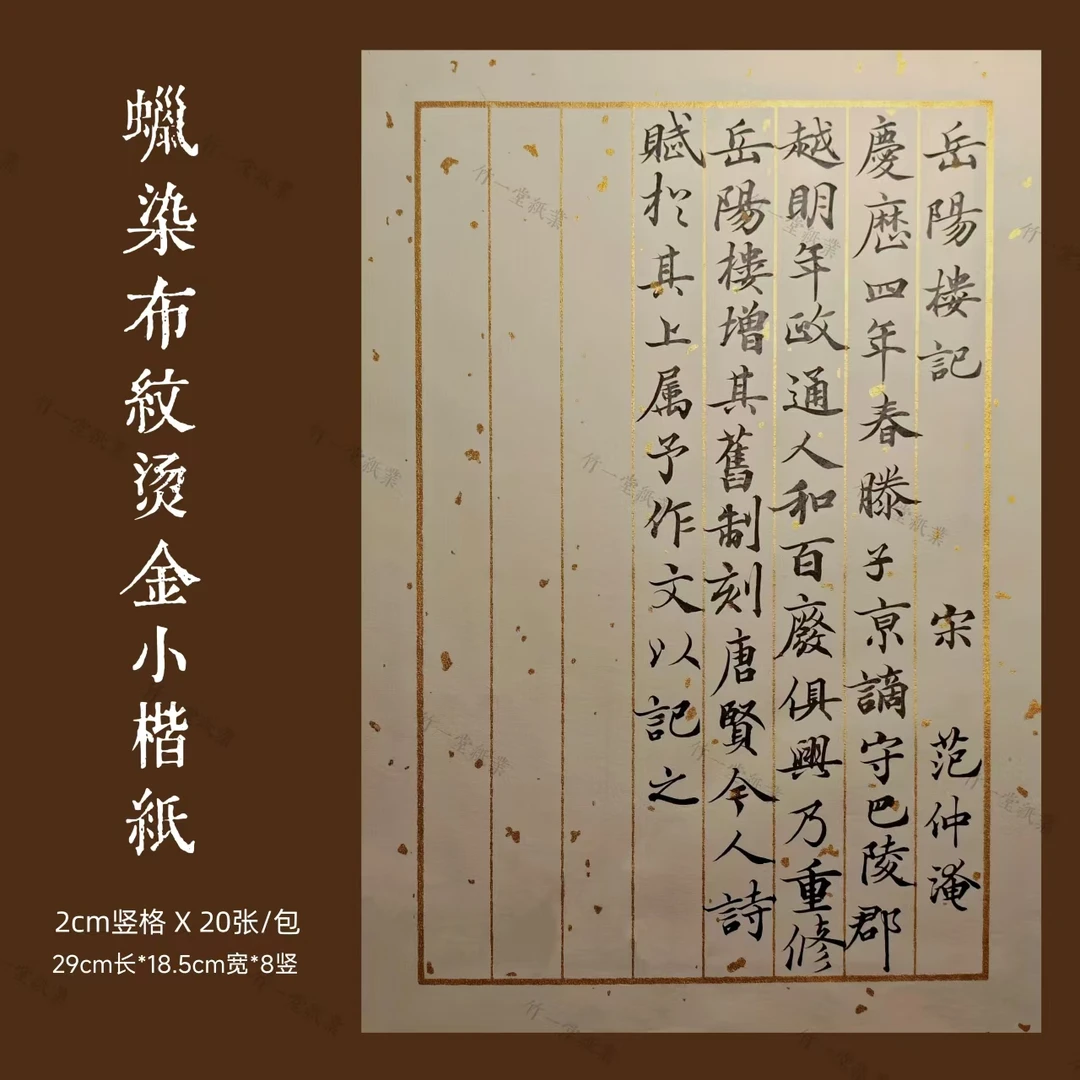 蠟染布紋燙金小楷紙
2cm竖格 X 20张/包
29cm长*18.5cm宽*8竖
岳陽樓記 宋 范仲淹
慶歷四年春滕子京謫守巴陵郡
越明年政通人和百廢俱興乃重修
岳陽樓增其舊制刻唐賢今人詩
賦於其上属予作文以記之
竹一堂紙業